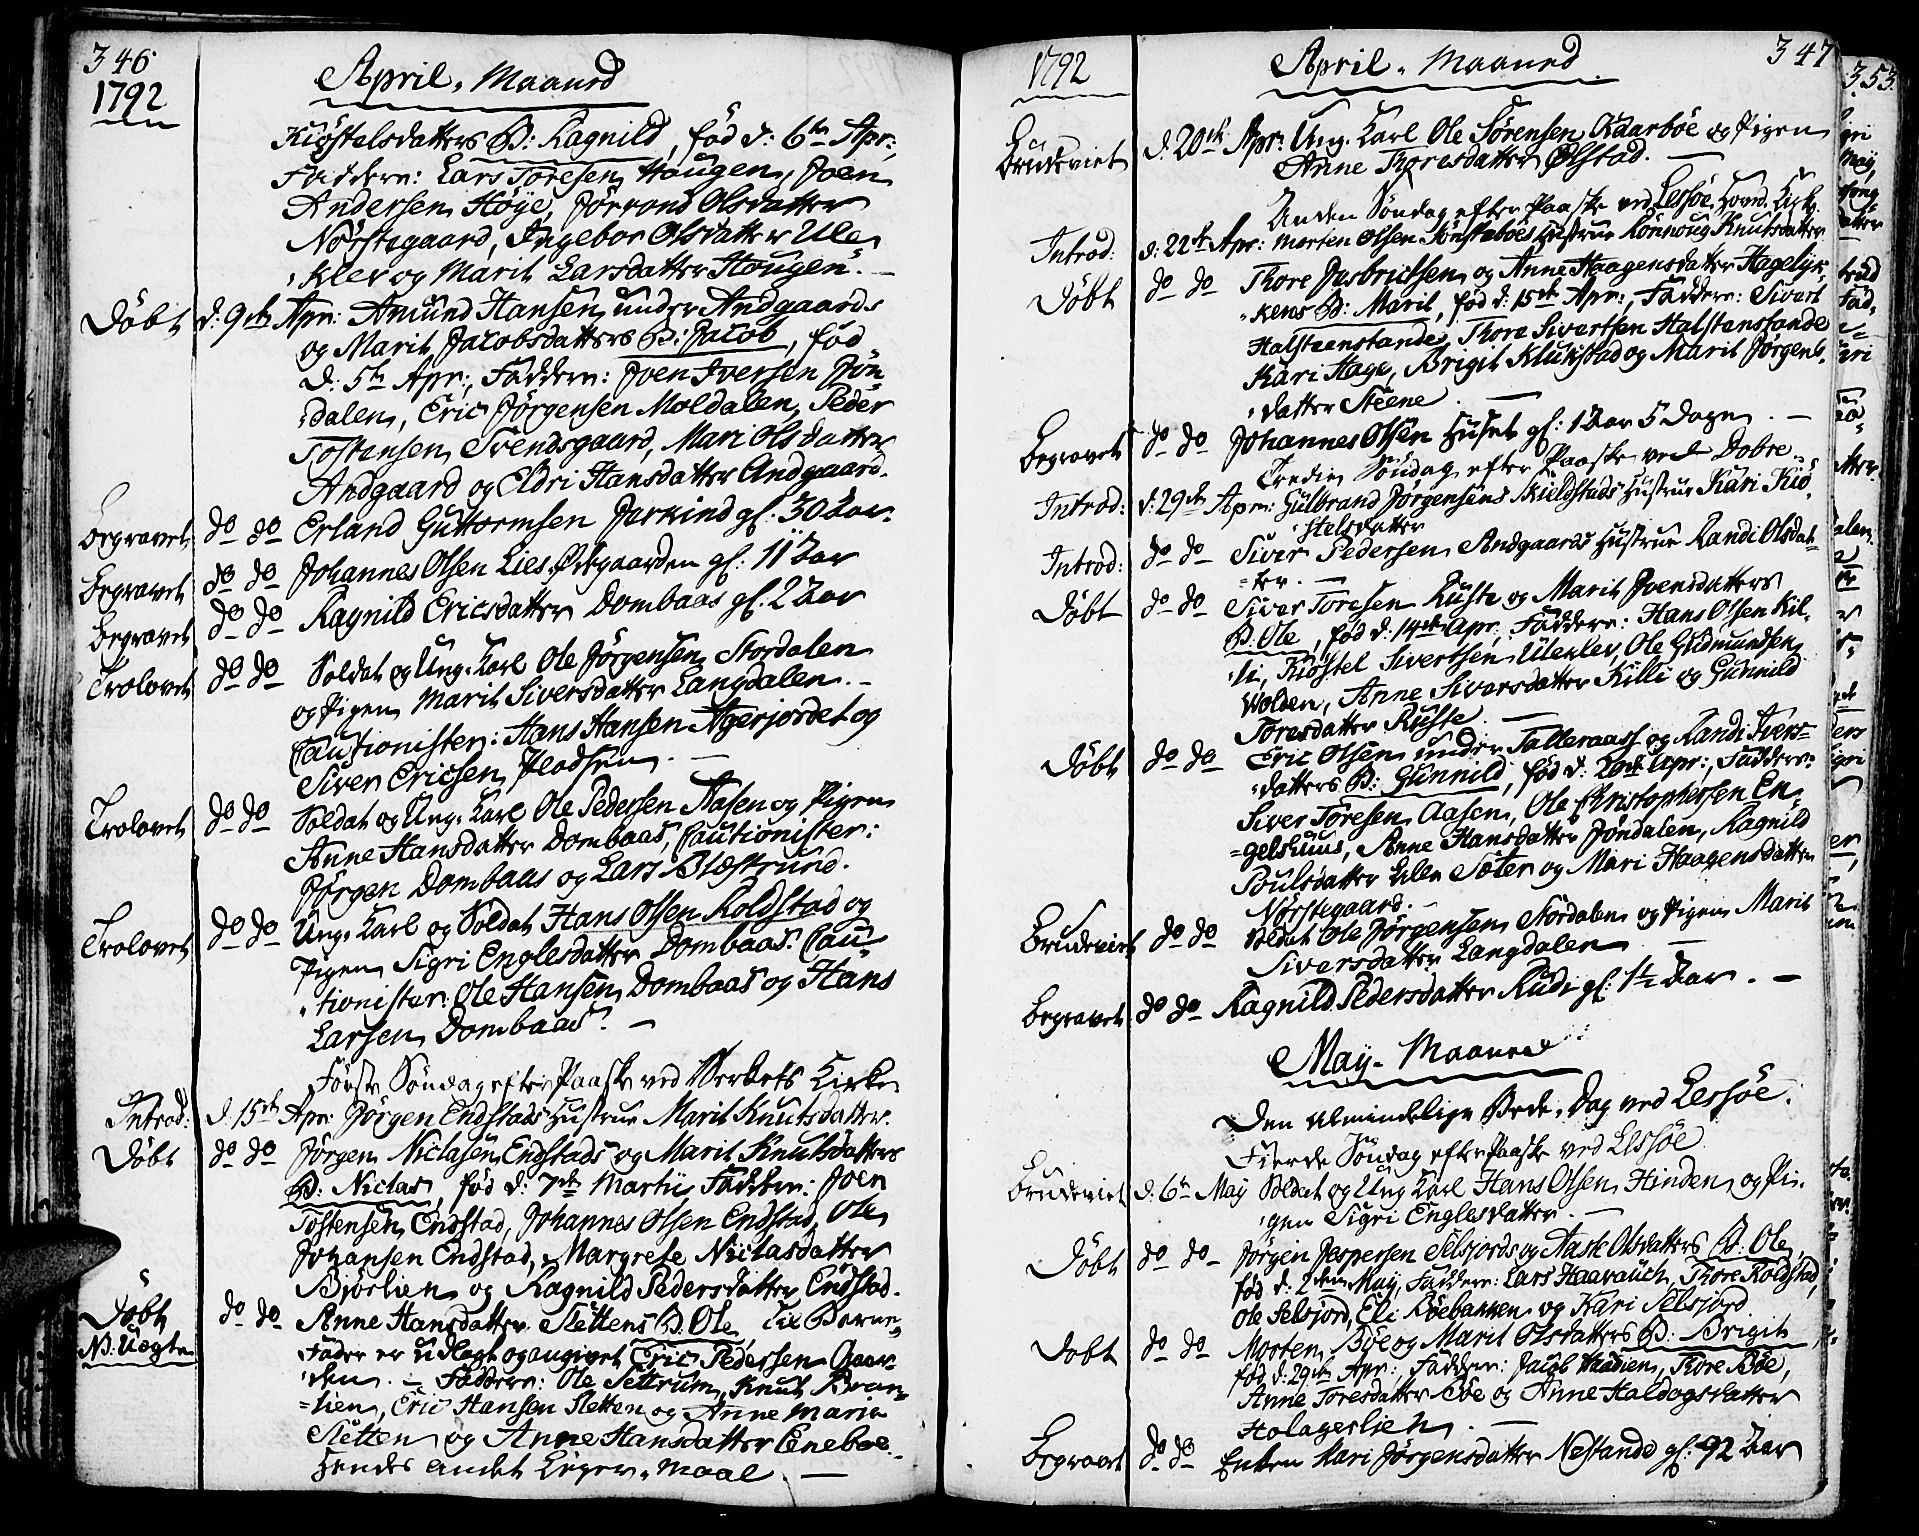 346
1792
April Maaned
Kiøstelsdatters B: Ragnild, fød d: 6te Apr:,
Faddere: Lars Toresen Hougen, Joen
Andersen Høye, Jørrond Olsdatter
Nørstegaard, Ingebor Olsdatter Ule
klev og Marit Larsdatter Hougen. -
Døbt d: 9de Apr: Amund Hansen under Andgaards
og Marit Jacobsdatters B: Jacob, fød
d: 5te Apr:, Faddere: Joen Iversen Jøn
dalen, Eric Jørgensen Moldalen, Peder
Tostensen Svendsgaard, Mari Olsdatter
Andgaard og Eldri Hansdatter Andgaard.
Begravet do do Erland Guttormsen gl: 30 Aar.
Begravet do do Johannes Olsen Lies Øvgaarden gl: 11 Aar
Begravet do do Ragnild Ericsdatter Dombaas gl. 2 Aar
Trolovet do do Soldat og Ung. Karl Ole Jørgensen Stordalen
og Pigen Marit Siversdatter Langdalen. -
Cautionister: Hans Hansen Agerjordet og
Siver Ericsen -
Trolovet do do Soldat og Ung. Karl Ole Pedersen Aasen og Pigen
Anne Hansdatter Dombaas, Cautionister:
Jørgen Dombaas og Lars Blæstrud.
Trolovet do do Ung. Karl og Soldat Hans Olsen Roldstad og
Pigen Sigri Englesdatter Dombaas. Cau
tionister: Ole Hansen Dombaas og Hans
Larsen Dombaas. -
Første Søndag efter Paaske ved Verkets Kirke
Introd: d. 15de Apr: Jørgen Endstads Hustrue Marit Knutsdatter.
Døbt do do Jørgen Niclasen Endstads og Marit Knutsdatters
B: Niclas, fød d: 7de Martii Faddere: Joen
Tostensen Endstad, Johannes Olsen Endstad, Ole
Johansen Endstad, Margrete Niclasdatter
Bjørlien og Ragnild Pedersdatter Endstad.
Døbt do do Anne Hansdatter Slettens B: Ole, til Barne
N. Uegte Fader er udlagt og angivet Eric Pedersen Gaar
den. - Faddere: Ole Settrum, Knut Bran
lien, Eric Hansen Sletten og Anne Marie
Sletten og Anne Hansdatter Eneboe.
Hendes andet Leyer-maal. -
1792
April Maaned
347
Brudeviet d. 20de Apr: Ung. Karl Ole Sørensen Kaarbøe og Pigen
Anne Thoresdatter Ølstad. -
Anden Søndag efter Paaske ved Lessøe Hoved Kirke
Introd: d: 22de Apr: Morten Olsen Tønsteboes Hustrue Rønnoug Knutsdatter
Døbt do do Thore Jusbrictsen og Anne Haagensdatter Hagelyk
kens B: Marit, fød d: 15de Apr:, Faddere: Sivert
Halstenstande, Thore Sivertsen Halstenstande
Kari Hage, Brigit Klukstad og Marit Jørgens
datter Steene. -
Begravet do do Johannes Olsen Huset gl: 1 Aar 5 Dage. -
Tredie Søndag efter Paaske ved Dobre
Introd: d: 29de Apr: Gulbrand Jørgensens Skieldstads Hustrue Kari Kiø
stelsdatter
Introd: do do Siver Pedersen Andgaards Hustrue Randi Olsdat
ter. -
Døbt do do Siver Toresen Ruste og Marit Joensdatters
B. Ole, fød d: 14de Apr. Faddere: Hans Olsen Kil
li, Kiøstel Sivertsen Uleklev, Ole Gudmundsen
Wolden, Anne Siversdatter Killi og Gunnild
Toresdatter Ruste. -
Døbt do do Eric Olsen under Talleraass og Randi Ivers
datters B: Gunnild, fød d: 20de Apr:, Faddere:
Siver Toresen Aasen, Ole Christophersen En
gelshuus, Anne Hansdatter Jøndalen, Ragnild
Poulsdatter Sæter og Mari Haagensdatter
Nørstegaard. -
Brudeviet do do Soldat Ole Jørgensen Stordalen og Pigen Marit
Siversdatter Langdalen -
Begravet do do Ragnild Pedersdatter Rudi gl: 1½ Aar. -
May Maaned
Den Almindelige Bede-Dag ved Lessøe.
Fierde Søndag efter Paaske ved Lessøe
Brudeviet d: 6te May Soldat og Ung Karl Hans Olsen Hinden og Pi
gen Sigri Englesdatter. -
Døbt do do Jørgen Jespersen Selsjords og Aase Olsdatters B: Ole,
fød d: 2den May, Faddere: Lars Haarauch, Thore Roldstad,
Ole Selsjord, Eli Bøebakken og Kari Selsjord.
Døbt do do Morten Bøe og Marit Olsdatters B: Brigit,
fød d: 29de Apr: Faddere: Jacob Thøre Bøe,
Anne Toresdatter Bøe og Anne Haldogsdatter
Holagerlien. -
Begravet do do Enken Mari Jørgensdatter Nestande gl: 92 Aar
353